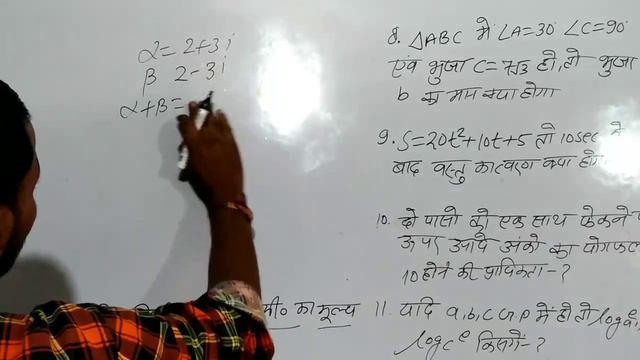 α = 2+3i
β 2-3i
α+β =
8. △ABC में ∠A=30° ∠C=90°
एवं भुजा C=7√3 हो, तो भुजा
b का माप क्या होगा
9. S=20t²+10t+5 तो 10sec में
बाद वस्तु का त्वरण क्या होगा
10. दो पासो को एक साथ फेकने
ऊपर आये अंको का योगफल
10 होने की प्रायिकता-?
मी० का मूल्य
11. यदि a,b,c G.P में हो तो log
किसमें-?